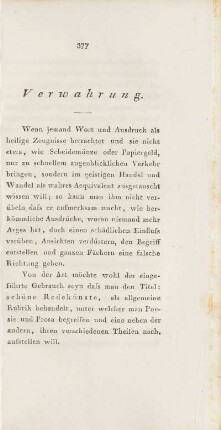 377
Verwahrung.
Wenn jemand Wort und Ausdruck als
heilige Zeugnisse betrachtet und sie nicht
etwa, wie Scheidemünze oder Papiergeld,
nur zu schnellem augenblicklichen Verkehr
bringen, sondern im geistigen Handel und
Wandel als wahres Aequivalent ausgetauscht
wissen will; so kann man ihm nicht ver-
übeln daſs er aufmerksam macht, wie her-
kömmliche Ausdrücke, woran niemand mehr
Arges hat, doch einen schädlichen Einfluſs
verüben, Ansichten verdüstern, den Begriff
entstellen und ganzen Fächern eine falsche
Richtung geben.
Von der Art möchte wohl der einge-
führte Gebrauch seyn daſs man den Titel:
schöne Redekünste, als allgemeine
Rubrik behandelt, unter welcher man Poe-
sie und Prosa begreifen und eine neben der
andern, ihren verschiedenen Theilen nach,
aufstellen will.